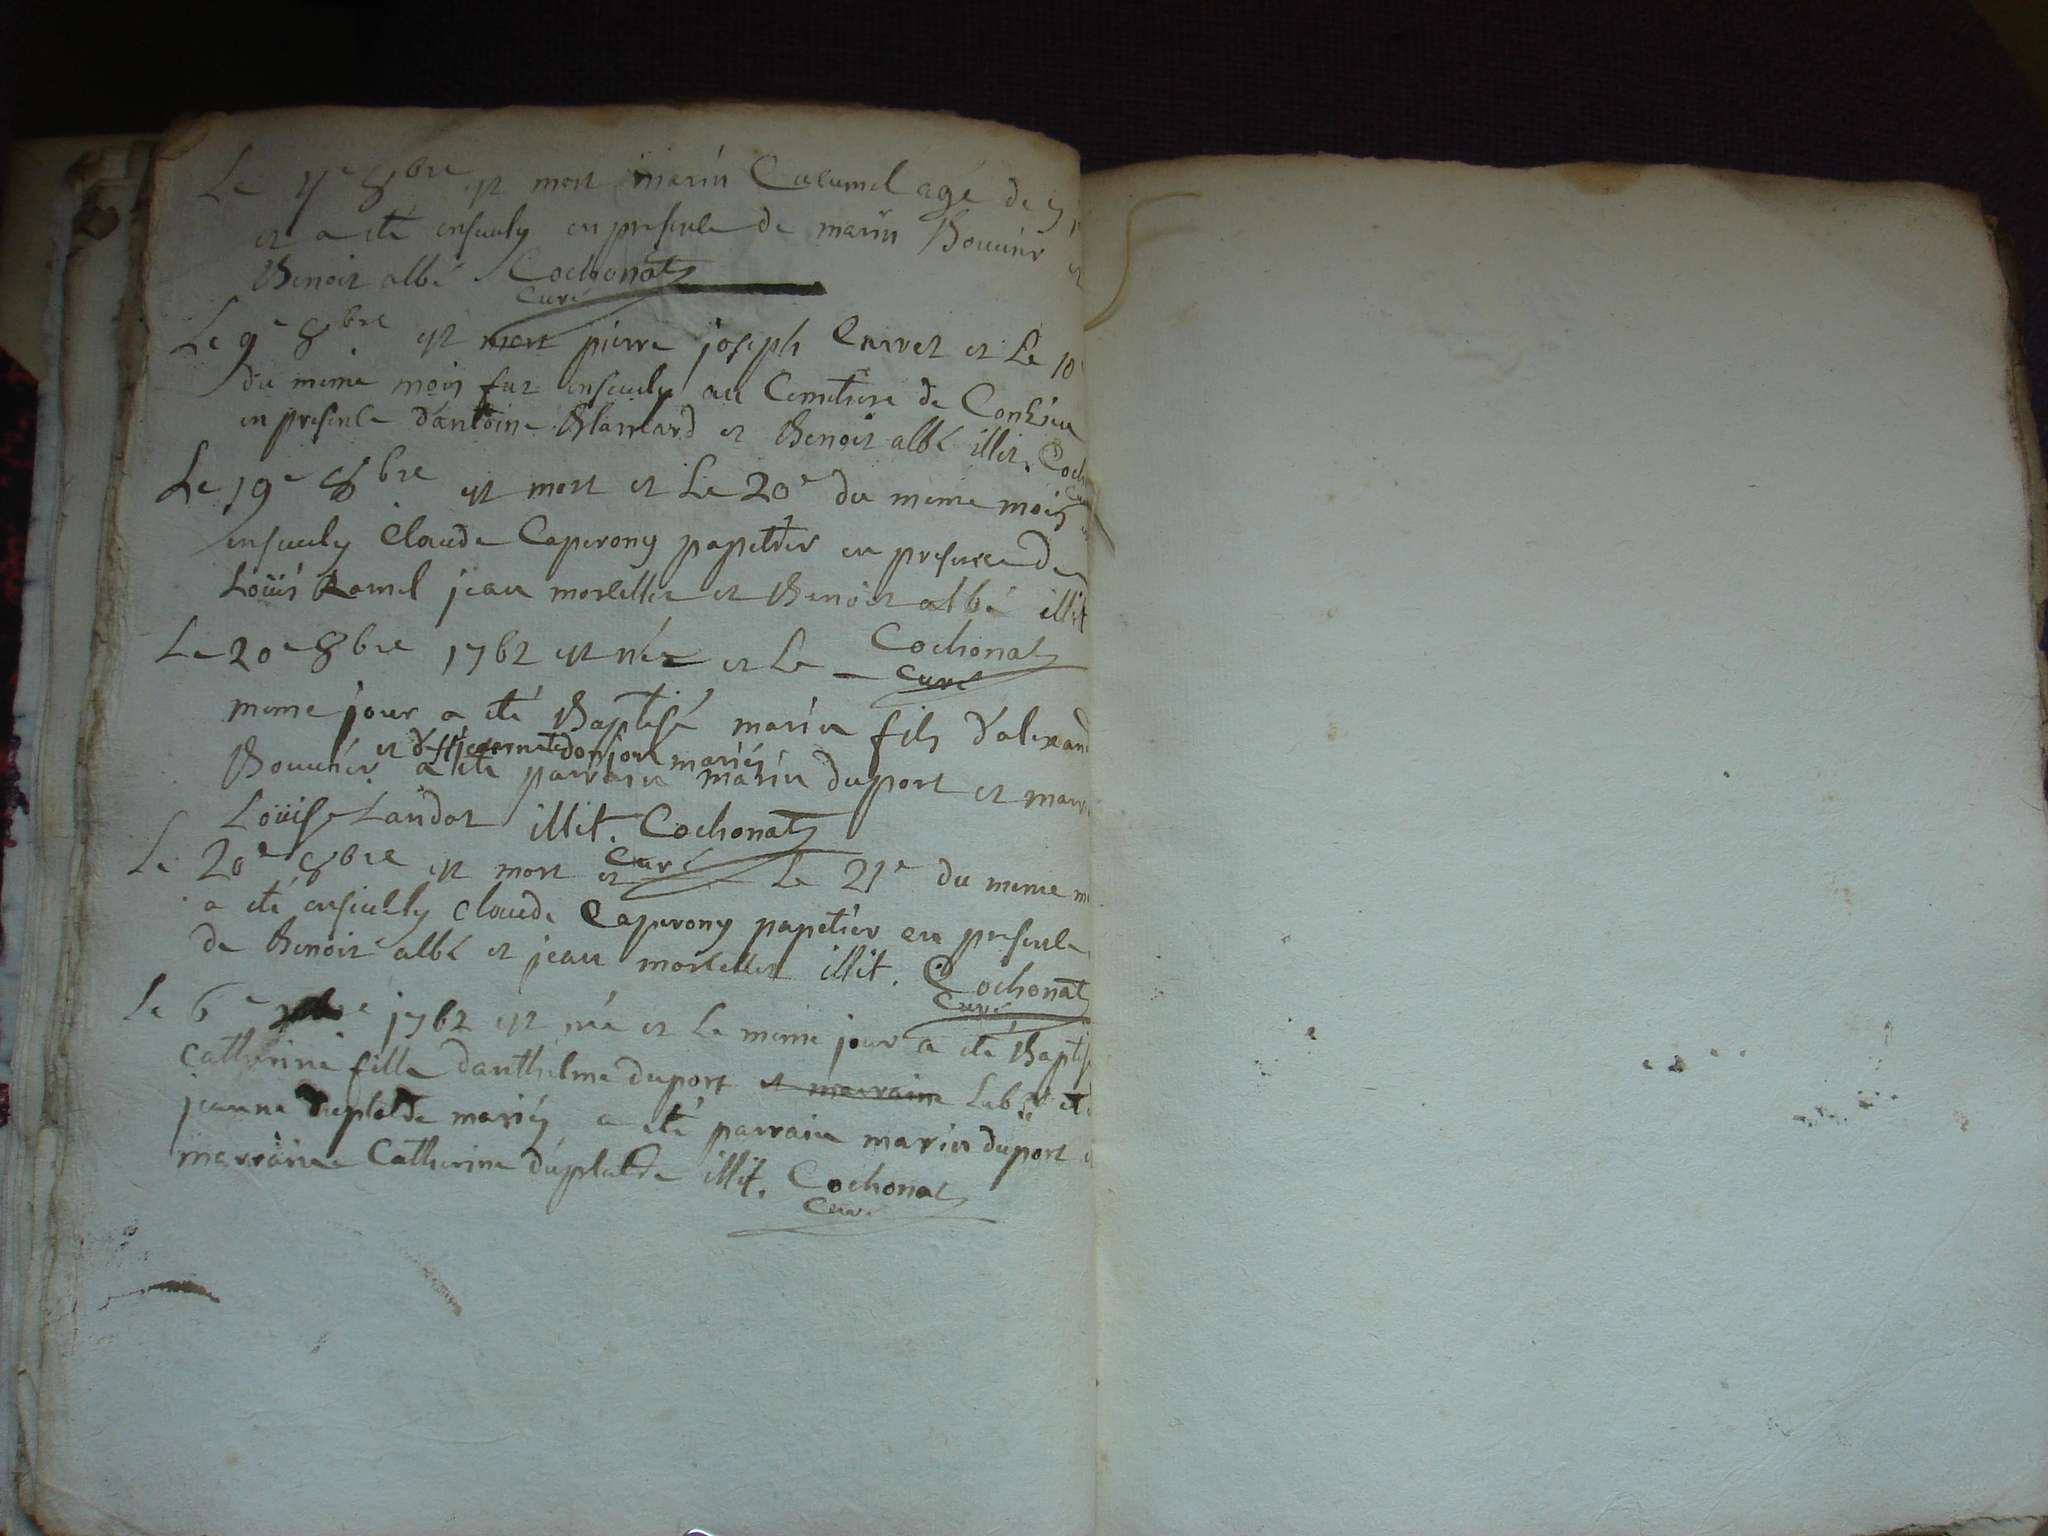 Le 4e 8bre est mort marin Calamel agé de
et a eté enseuely en presence de marin Bouuier et
Benoit albé Cochonat
Curé
Le 9e 8bre est mort pierre joseph Carret et Le 10e
du meme mois fut enseuely au Cemetiere de Conzieu
en presence d'antoine Blanchard et Benoit albé illit. Coch
Le 19e 8bre est mort et Le 20e du meme mois
enseuely Claude Caperony papetier en presence de
Loüis Ramel jean morcellet et Benoit albé illit
Cochonat
Curé
Le 20e 8bre 1762 est née et Le
meme jour a eté Baptisé marin fils d'alexand
et de jeannete donjou mariés
Bouuier a eté parrain marin duport et marr
Loüise Landot illit. Cochonat
Curé
Le 20e 8bre est mort et Le 21e du meme m
a eté enseuelly Claude Caperony papetier en presence
de Benoit albé et jean morcellet illit. Cochonat
Curé
Le 6e 1762 est née et Le meme jour a eté Baptis
Catherine fille d'anthelme duport et marraine Lab. et de
jeanne duplatde mariés a eté parrain marin duport et
marraine Catherine duplatde illit. Cochonat
Curé